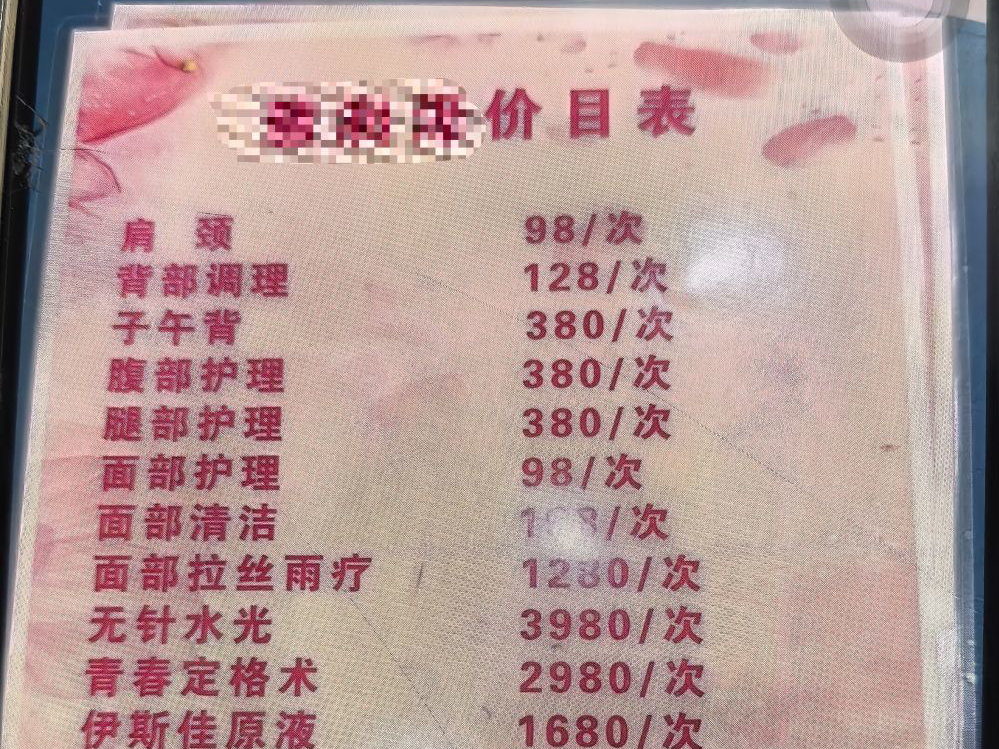 价目表
肩 颈 98/次
背部调理 128/次
子午背 380/次
腹部护理 380/次
腿部护理 380/次
面部护理 98/次
面部清洁 /次
面部拉丝雨疗 1280/次
无针水光 3980/次
青春定格术 2980/次
伊斯佳原液 1680/次